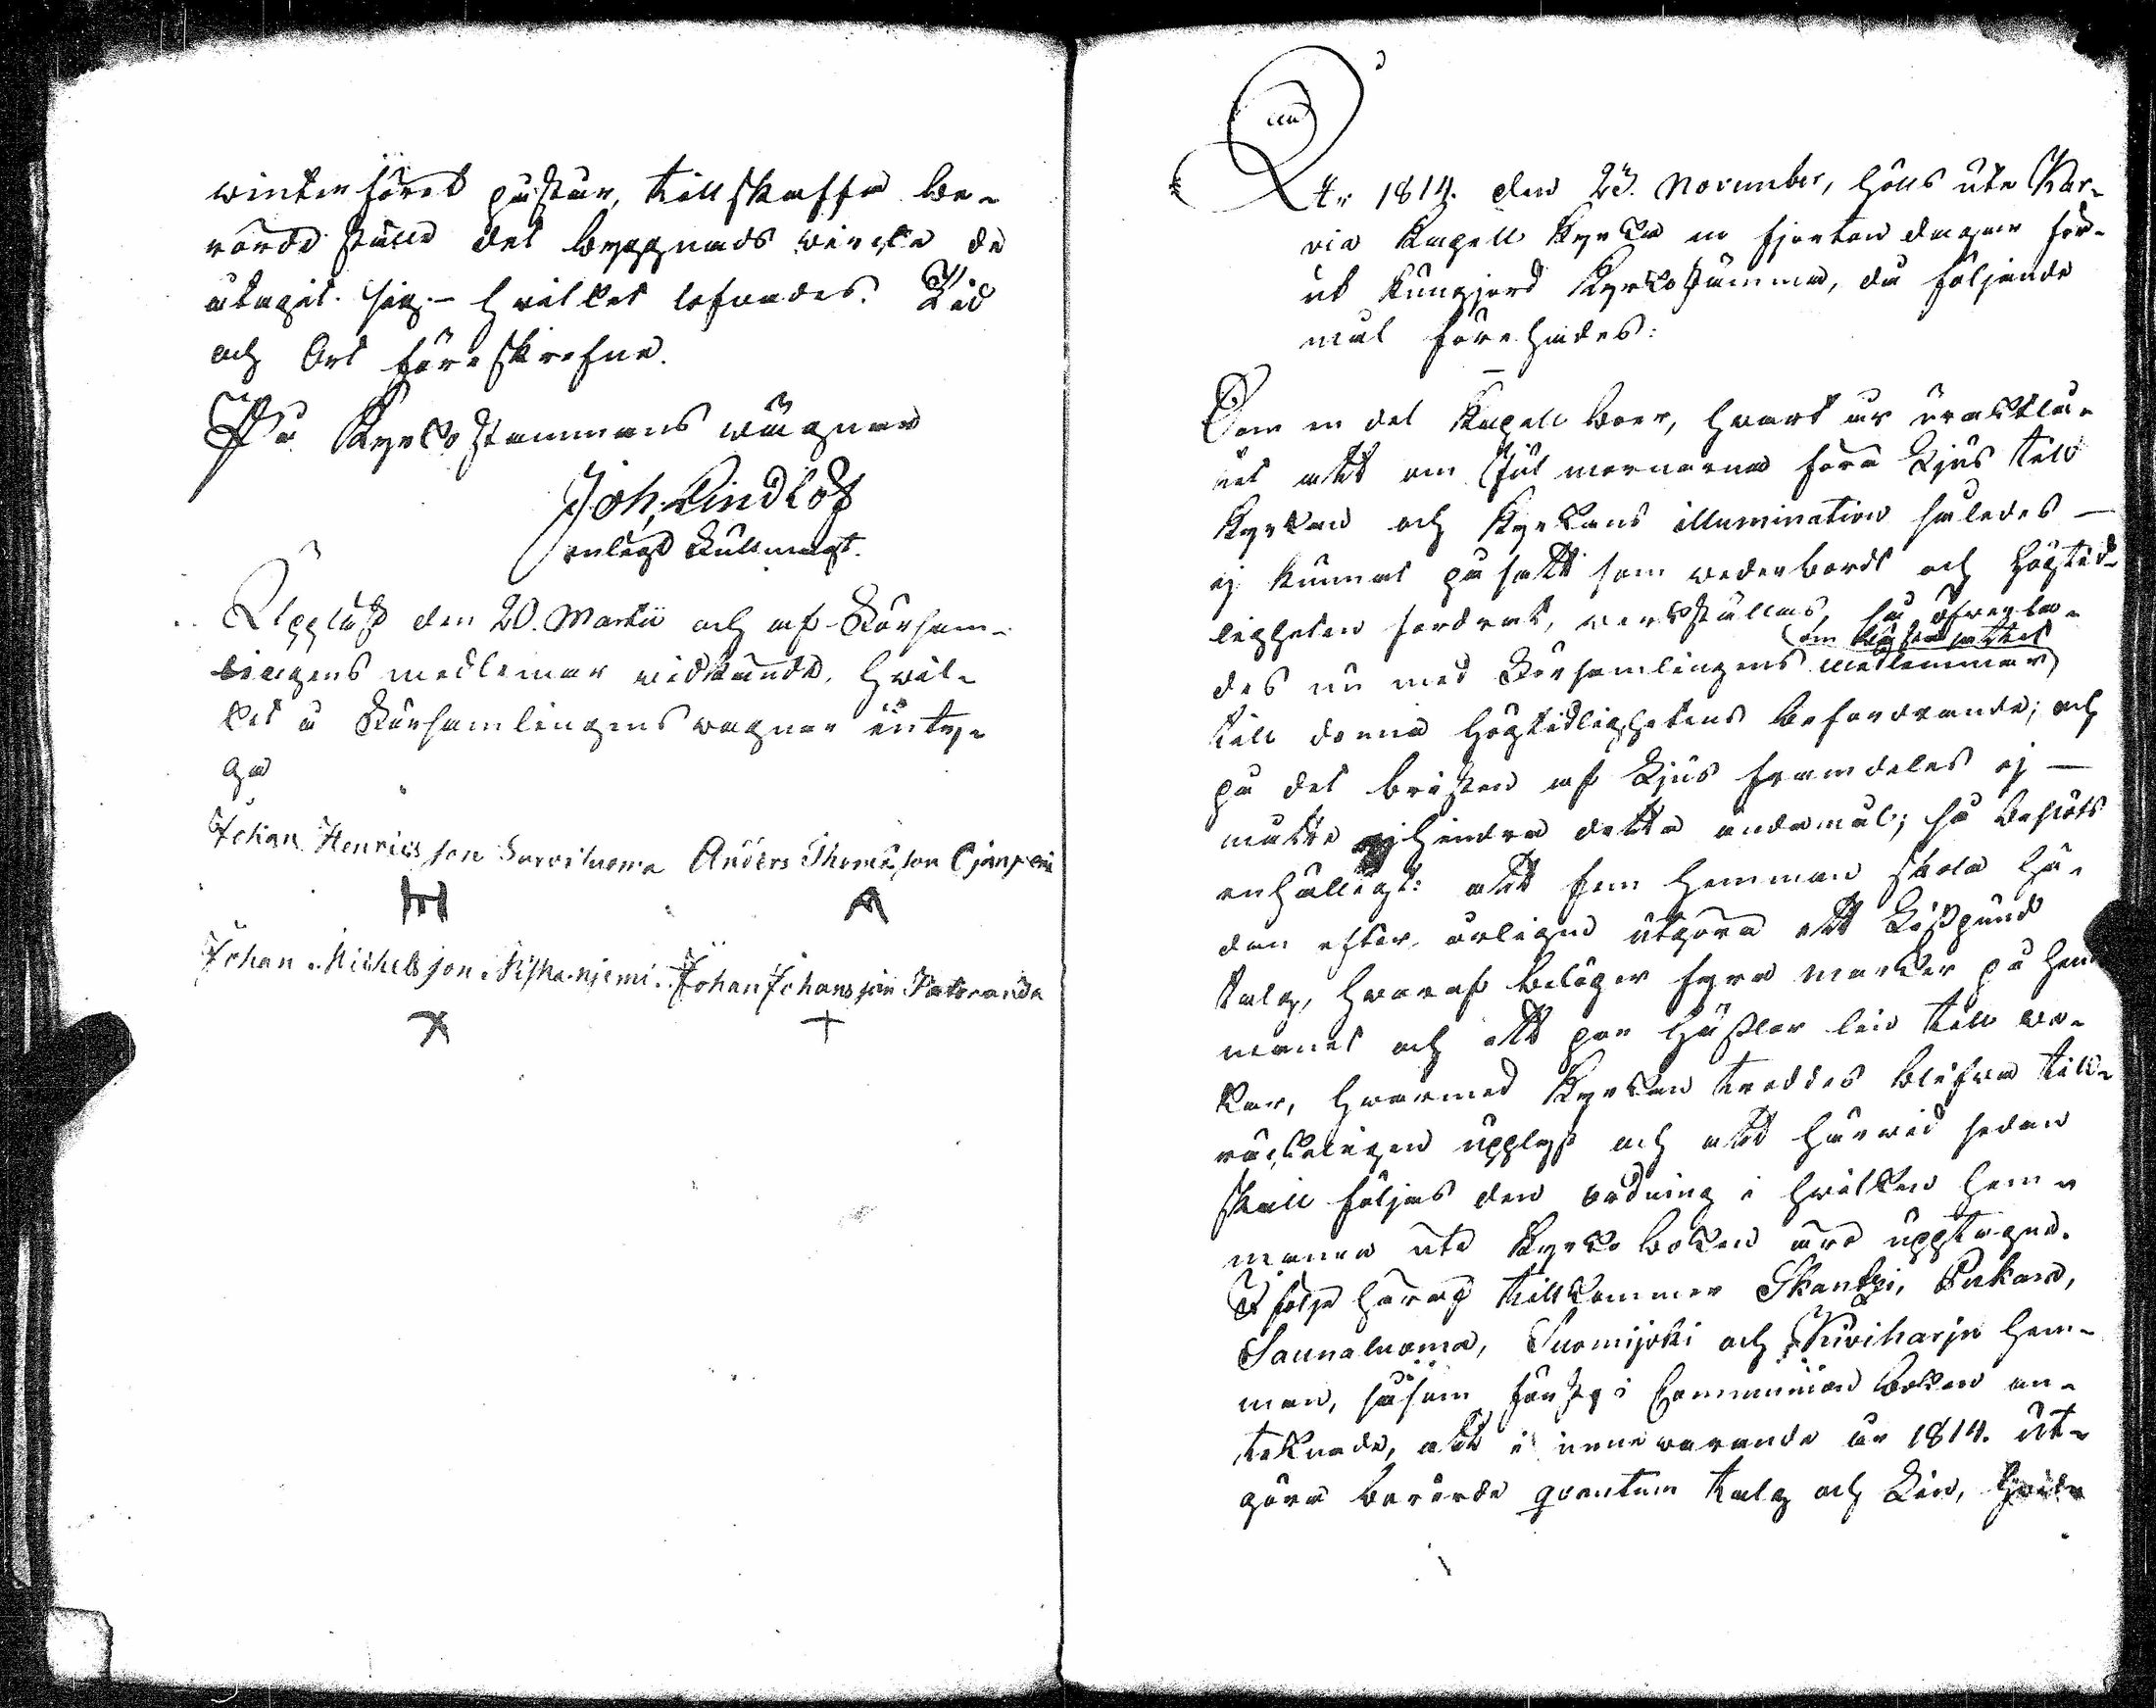 winterföret påstår, tillskaffa be-
rörde ställe det byggnads wircke de
åtagit sig - hvilket lofvades. Tid
och Ort föreskrefne.
På Kyrkostämmans wägnar
Joh. Lindlöf
enligt Fullmagt.
Uppläst den 20. Martii och af Församlingens
medlemar vidkändt, hvil-
ket å Församlingens wägnar inty-
ga
Johan Henricsson Surviluoma Anders Thomasson Ojanperä
Johan Michelsson Niskaniemi. Johan Johansson Patoranda
År 1814. den 23. November, hölls uti Kar-
via Kapell Kyrka en fjorton dagar för-
ut kungjord Kyrkostämma, då följande
mål förehades:
Som en del Kapell boer, hvart år uraktlå-
tit att om Jul mornarna föra Ljus till
Kyrkan och Kyrkans illumination således -
ej kunnat på sätt som wederbordt och högtid-
ligheten fordrat, werkställas, så öfverla-
des nu med Församlingens medlemmar
om bästa sättet
till denna Högtidlighetens befordrande; och
på det bristen af Ljus framdeles ej -
måtte hindra detta ändamål; så beslöts
enhälligt: att fem Hemman skola hä-
dan efter årligen utgöra ett Lispund
talg, hvaraf belöper fyra marker på Hem
manet och ett par Häktor lin till ve-
kar, hvarmed Kyrkan troddes blifva till-
räckeligen upplyst och att härwid sedan
skall följas den ordning i hvilken Hem-
manen uti Kyrko boken äro upptagne.
I följe häraf tillkommer Skantzi, Pukara,
Saunaluoma, Suomijoki och Kiviharju Hem-
man, såsom först i Communion boken an-
teknade, att i innewarande år 1814. ut-
göra berörde quantum talg och Lin, hvilke